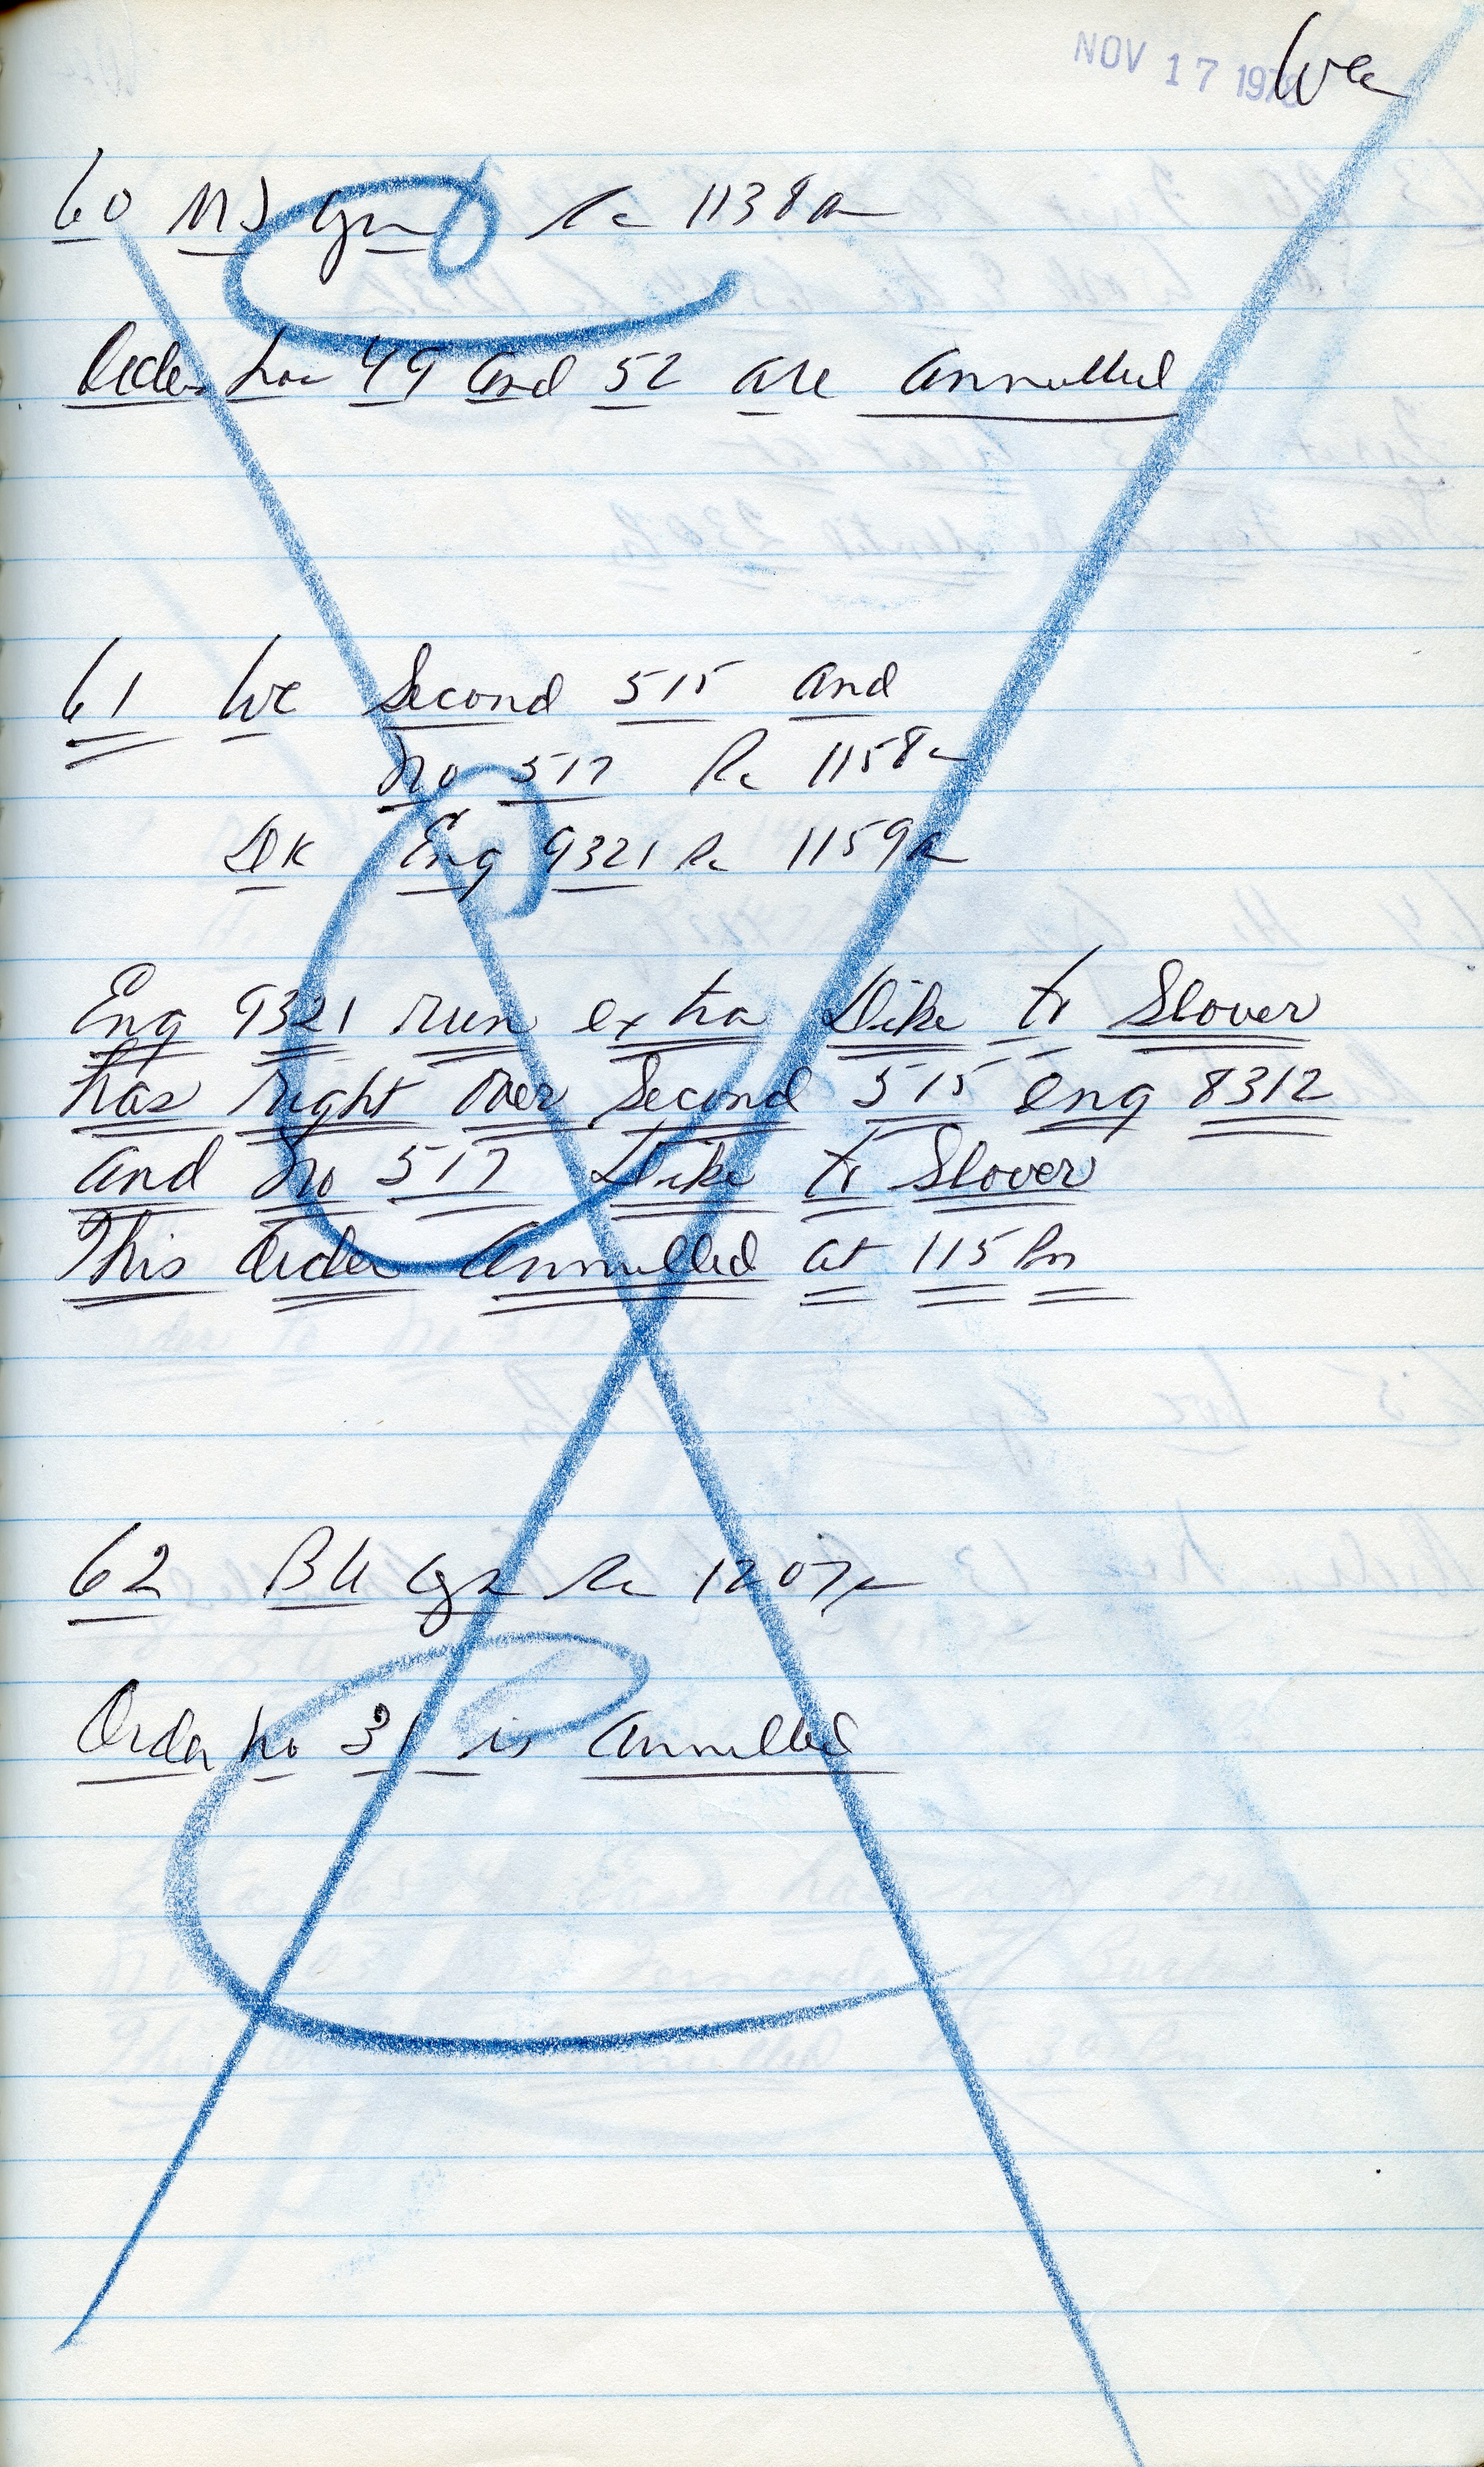 NOV 17 197
We
60 MJ Gm Rc 1138a
Orders nos 49 and 52 are annulled
61 We Second 515 and
No 517 Rc 1158a
DK Eng 9321 Rc 1159a
Eng 9321 run extra Dike to Slover
has right over Second 515 eng 8312
and No 517 Dike to Slover
This Order annulled at 115 Pm
62 BU Rc 1207p
Order No 31 is annulled